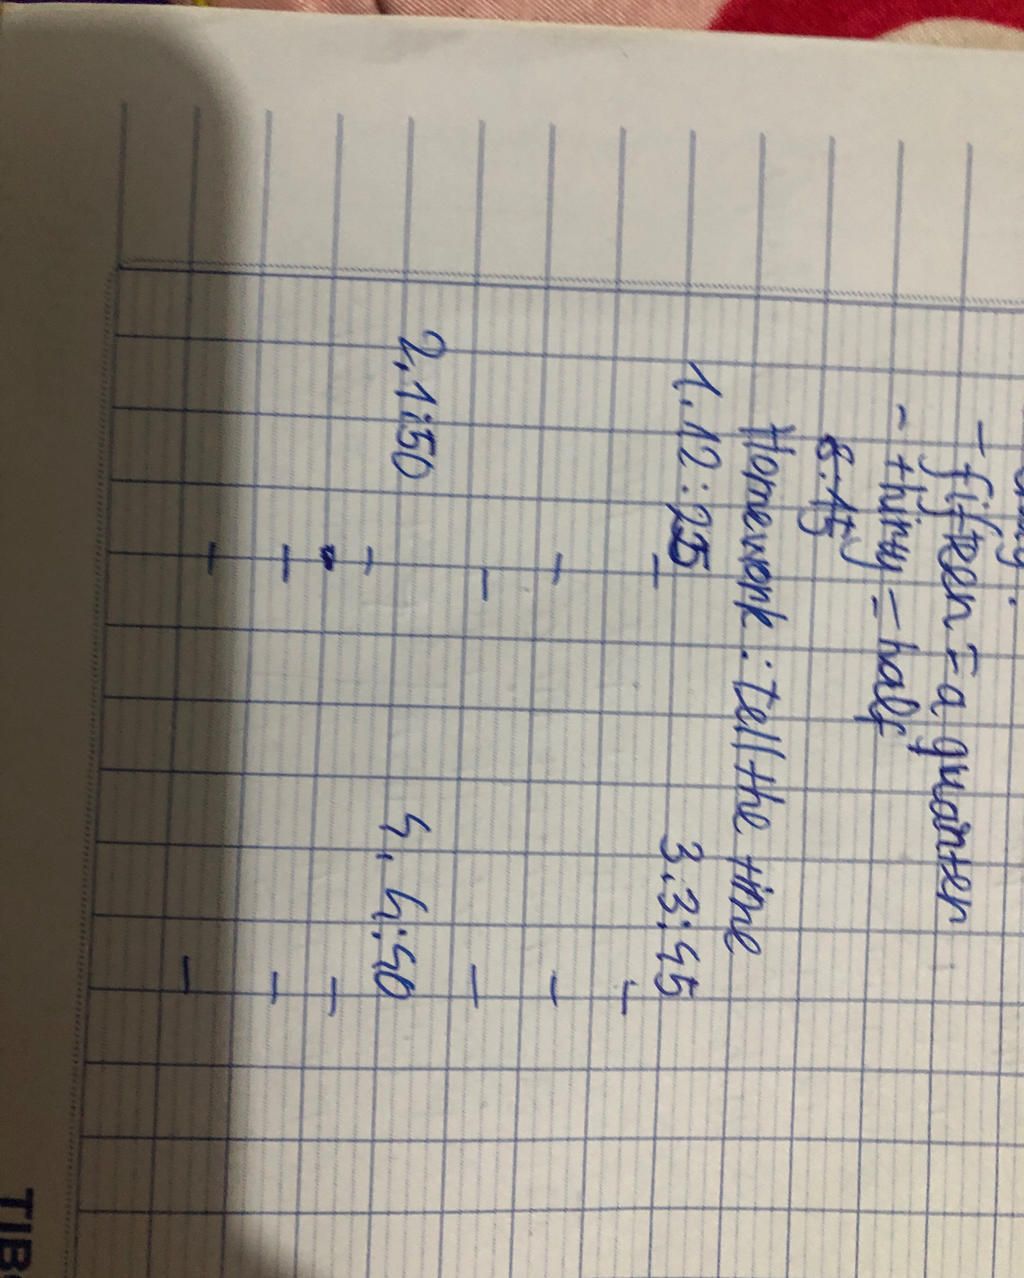 - fifteen = a quarter
- thiry = half
8:15
Homework: tell the time
1. 12:25 3. 3:45
-
-
-
2. 1:50 4. 4:40
-
-
-